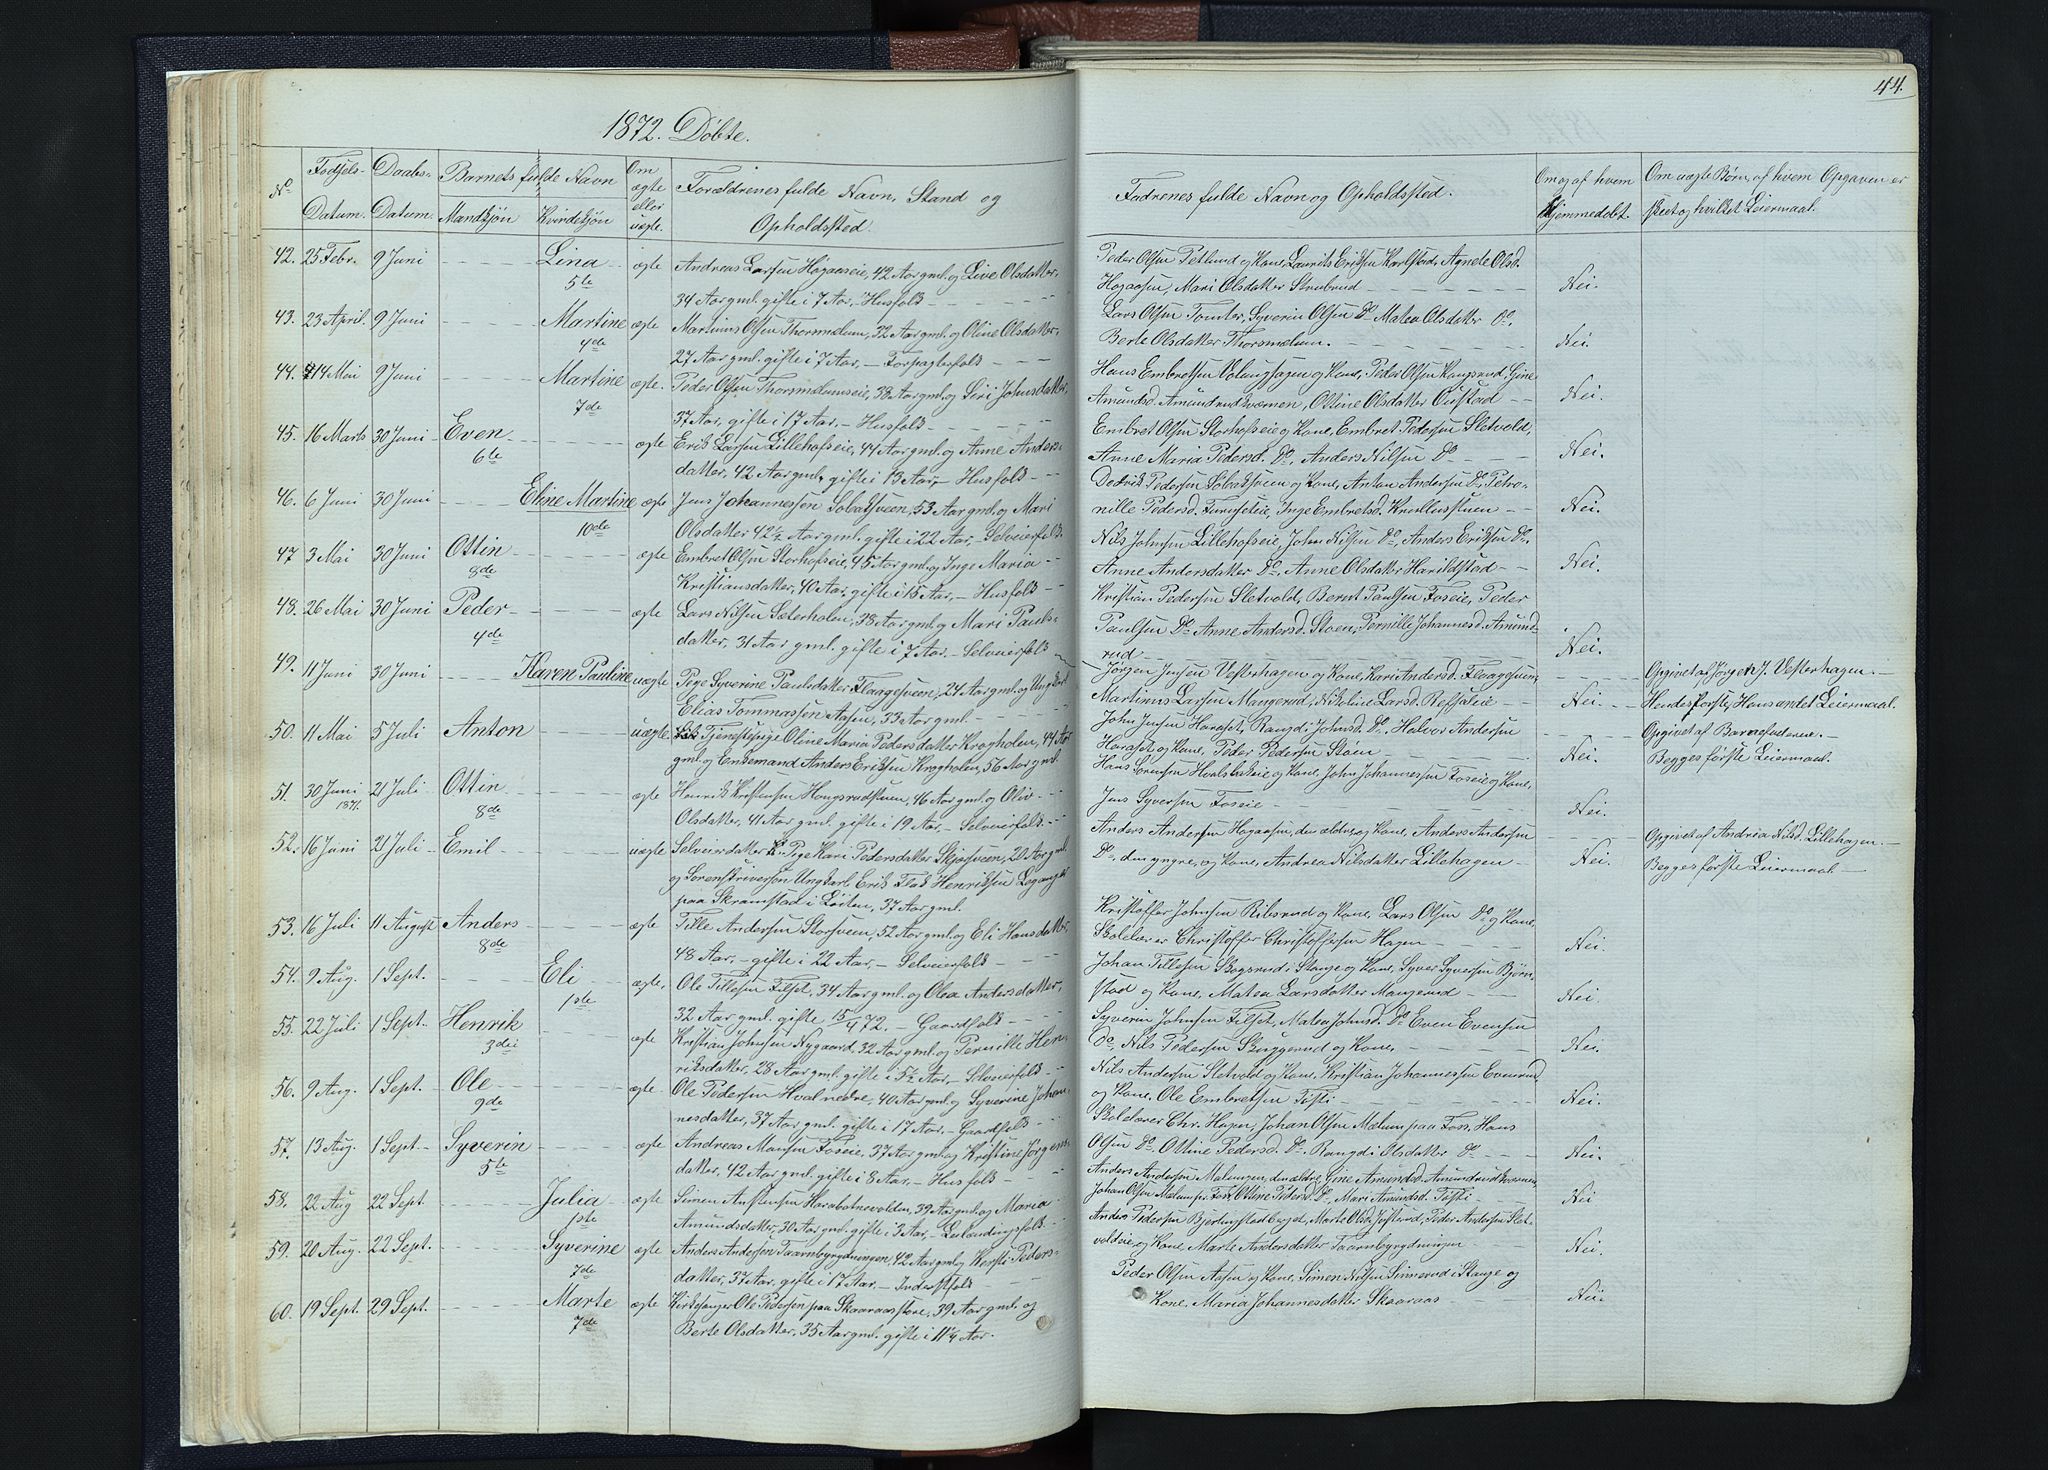 44.
1872. Döbte.
No
Födsels-
Datum.
Daabs-
Datum.
Barnets fulde Navn
Mandkjön
Kvindekjön
Om
ægte
eller
uægte.
Forældrenes fulde Navn, Stand og
Opholdssted.
Fadrenes fulde Navn og Opholdssted.
Om og af hvem
Hjemmedøbt.
Om uægte Børn, af hvem Opgaven er
skeet og hvilket Leiermaal.
42. 25 Febr. 9 Juni Lina ægte Andreas Larsen Høgaaseie, 42 Aar gml. og Live Olsdatter,
5te
34 Aar gml. gifte i 7 Aar, – Husfolk
Peder Olsen Petlund og Kone, Laurits Eriksen Karlstad, Agnete Olsd.
Høgaasen, Mari Olsdatter Strubrud Nei.
43. 23 April. 9 Juni Martine ægte Martinus Olsen Thorsmælum, 32 Aar gml. og Oline Olsdatter,
4de
27 Aar gml. gifte i 7 Aar, – Forpagterfolk
Lars Olsen Tomter, Syverin Olsen Do Matea Olsdatter Do,
Berte Olsdatter Thorsmælum. Nei.
44. 14 Mai 9 Juni Martine ægte. Peder Olsen Thorsmælumseie, 38 Aar gml. og Siri Johnsdatter,
7de
37 Aar, gifte i 17 Aar. – Husfolk
Hans Embretsen Volungsagen og Kone, Peder Olsen Kongsrud, Gine
Amundsd. Amundrudkværnen, Ottine Olsdatter Oustad Nei.
45. 16 Marts 30 Juni Even ægte Erik Larsen Lillehofseie, 44 Aar gml. og Anne Anders-
6te
datter, 42 Aar gml, gifte i 13 Aar, – Husfolk
Embret Olsen Storhofseie og Kone, Embret Pedersen Sletvold,
Anne Maria Pedersd. Do, Anders Nilsen Do Nei.
46. 6 Juni 30 Juni Eline Martine ægte Jens Johannessen Sobaksveen, 53 Aar gml. og Mari
10de
Olsdatter 42½ Aar gml. gifte i 22 Aar, Selveierfolk
Dedrik Pedersen Sobaksveen og Kone, Anton Andersen Do, Petro-
nille Pedersd. Furuseteie, Inge Embretsd. Krollerstuen Nei.
47 3 Mai 30 Juni Ottin ægte Embret Olsen Storhofseie, 45 Aar gml. og Inge Maria
8de
Kristiansdatter, 40 Aar, gifte i 15 Aar, – Husfolk
Nils Johnsen Lillehofseie, John Nilsen Do, Anders Eriksen Do,
Anne Andersdatter Do, Anne Olsdatter Harildstad Nei.
48. 26 Mai 30 Juni Peder ægte Lars Nilsen Sæterholen, 38 Aar gml. og Mari Pauls-
4de
datter, 31 Aar gml. gifte i 7 Aar. – Selveierfolk
Kristian Pedersen Sletvold, Bernt Paulsen Foseie, Peder
Paulsen Do Anne Andersd. Stoen, Pernille Johannesd. Amund-
rud Nei.
49. 11 Juni 30 Juni Karen Pauline uægte Pige Syverine Paulsdatter Flaagesveen, 24 Aar gml. og Ungkarl
Elias Tommassen Aasen, 33 Aar gml.
Jørgen Jensen Vesterhagen og Kone, Kari Andersd. Flaagesveen,
Martinus Larsen Mangerud, Nikoline Larsd. Refsaleie Nei.
Opgivet af Jørgen J. Vesterhagen.
Hendes første, Hans andet Leiermaal.
50. 11 Mai 5 Juli Anton uægte Tjenestepige Oline Maria Pedersdatter Krogholen, 44 Aar
gml. og Enkemand Anders Eriksen Krogholen, 56 Aar gml.
John Jensen Haraset, Rangdi Johnsd. Do, Halvor Andersen
Haraset og Kone, Peder Pedersen Støen Nei.
Opgivet af Barnefaderen.
Begges første Leiermaal.
51. 30 Juni 21 Juli Ottin ægte Henrik Kristensen Hongsrudstuen, 46 Aar gml. og Oliv
1871. 8de
Olsdatter, 41 Aar gml. gifte i 19 Aar. – Selveierfolk
Hans Sørensen Hvalsbakeie og Kone, John Johannessen Foseie og Kone,
Jens Syversen Foseie Nei.
52. 16 Juni 21 Juli Emil uægte Selveierdatter Pige Kari Pedersdatter Skjøsveen, 20 Aar gml.
og Sorenskriversøn Ungkarl Erik Flak Henriksen
paa Skramstad i Löiten, 37 Aar gml.
Anders Andersen Høgaasen, den ældre, og Kone, Anders Andersen
Do, den yngre, og Kone, Andrea Nilsdatter Lillehagen Nei.
Opgivet af Andrea Nilsd. Lillehagen.
Begges første Leiermaal
53. 16 Juli 11 August Anders ægte Tille Andersen Storsveen, 52 Aar gml. og Eli Hansdatter,
8de
48 Aar, – gifte i 22 Aar, – Selveierfolk
Kristoffer Johnsen Ribsrud og Kone, Lars Olsen Do og Kone,
Skolelærer Christoffer Christoffersen Hagen Nei.
54. 9 Aug. 1 Sept. Eli ægte, Ole Tillesen Filset, 34 Aar gml. og Olea Andersdatter,
1ste
32 Aar gml. gifte 15/4 72. – Gaardfolk
Johan Tillesen Skogsrud i Stange og Kone, Syver Syversen Björn-
stad og Kone, Matea Larsdatter Mangerud Nei.
55. 22 Juli 1 Sept. Henrik ægte Kristian Johnsen Nygaard, 32 Aar gml. og Pernille Hen-
3die
riksdatter, 28 Aar gml. gifte i 5½ Aar, – Selveierfolk
Syverin Johnsen Filset, Matea Johnsd. Do Even Evensen
Do, Nils Pedersen Skuggerud og Kone, Nei.
56. 9 Aug. 1 Sept. Ole ægte Ole Pedersen Hvalnedre, 40 Aar gml. og Syverine Johan-
9de
nesdatter, 37 Aar gml. gifte i 17 Aar. – Gaardfolk
Nils Andersen Sletvold og Kone, Kristian Johannessen Evenrud
og Kone, Ole Embretsen Töfti Nei.
57. 13 Aug. 1 Sept. Syverin ægte Andreas Monsen Foseie, 37 Aar gml. og Kristine Jørgens-
5te
datter, 42 Aar gml. gifte i 8 Aar, – Husfolk
Skolelærer Chr. Hagen, Johan Olsen Mælum paa Foss, Hans
Olsen Do Ottine Pedersd. Do, Rangdi Olsdatter Do Nei.
58. 22 Aug 22 Sept Julia ægte Simen Anstensen Harabotnevolden, 39 Aar gml. og Maria
1ste
Amundsdatter, 30 Aar gml. gifte i 3 Aar,
Anders Andersen Malungen, den ældre, Gine Amundsd. Amundrudkværnen,
Johan Olsen Mælum pr Foss, Ottine Pedersd. Do, Mari Amundsd. Töfti Nei
59. 20 Aug. 22 Sept. Syverine ægte Anders Andersen Taarnbygdningen, 42 Aar gml, og Kersti Peders-
7de
datter, 37 Aar, gifte i 17 Aar. – Inderstfolk
Anders Pedersen Bjertingstadberget, Marte Olsd. Jösterud, Peder Andersen Slet-
voldeie og Kone, Marte Andersdatter Taarnbygdningen Nei.
60. 19 Sept. 29 Sept. Marte ægte Kirkesanger Ole Pedersen paa Skaaraasstore, 39 Aar gml. og
7de
Berte Olsdatter, 35 Aar gml. gifte i 11¼ Aar.
Peder Olsen Aasen og Kone, Simen Nilsen Sinnerud i Stange og
Kone, Maria Johannesdatter Skaaraas Nei.